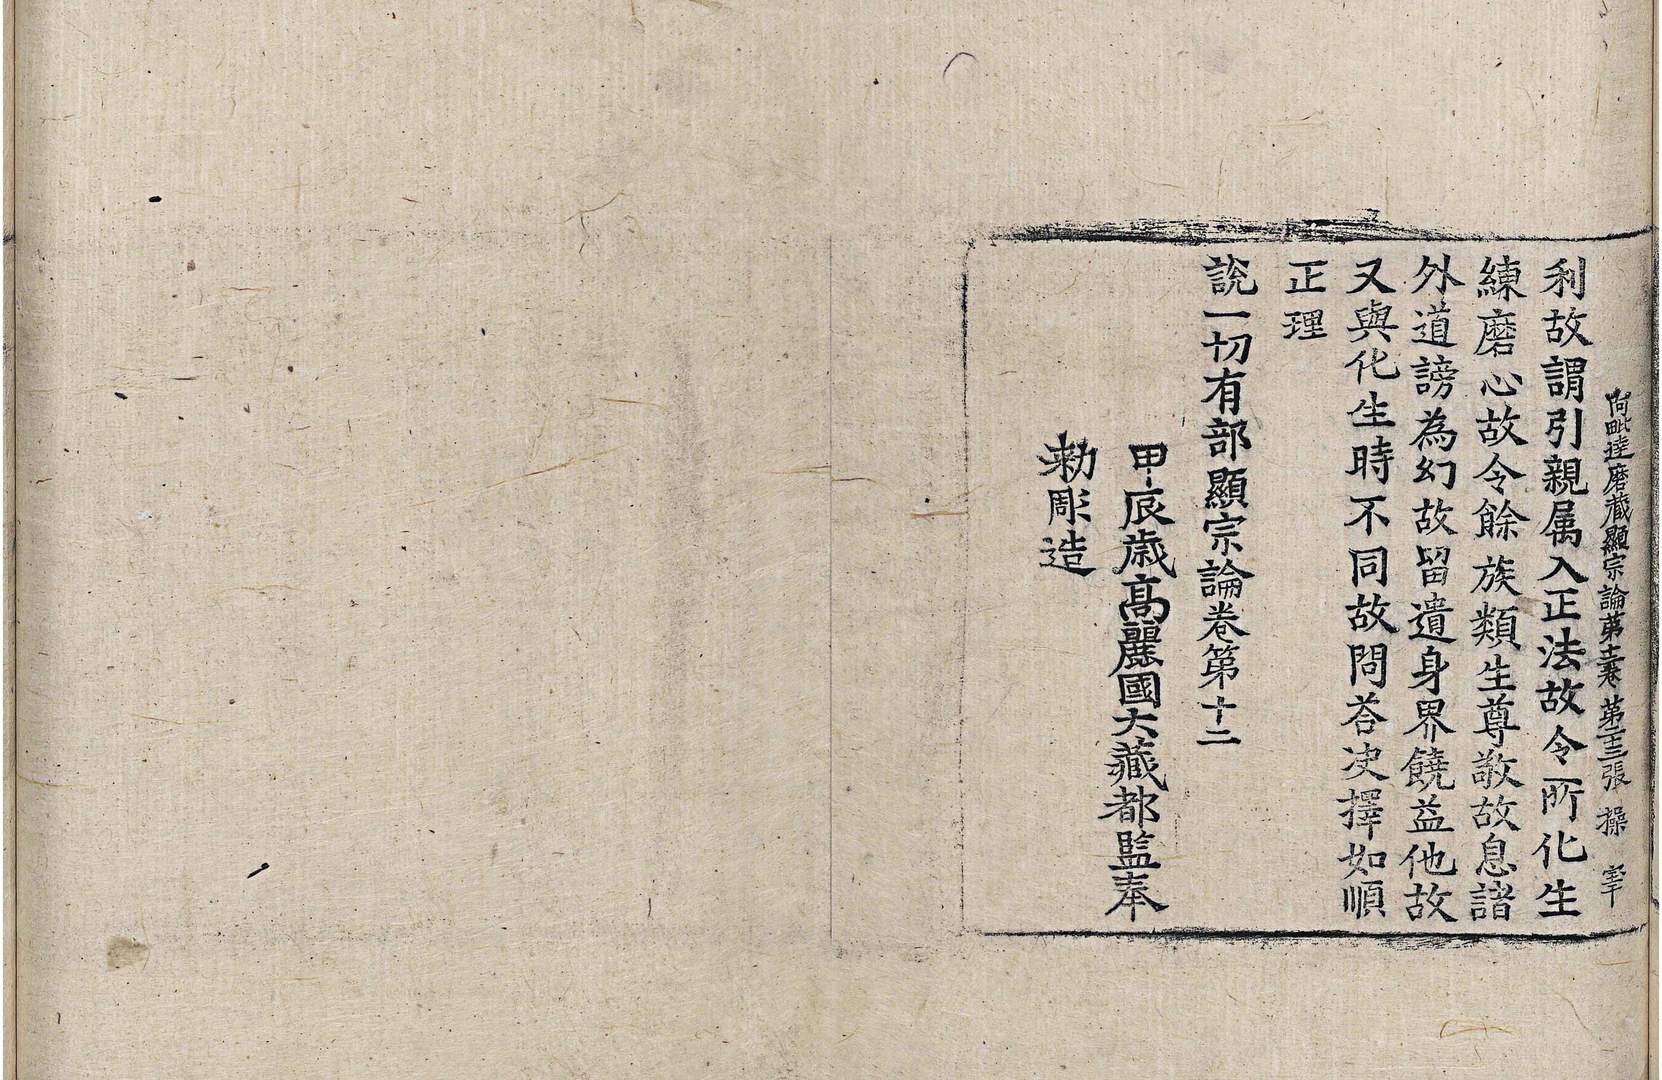 阿毗達磨藏顯宗論第十二卷 第二十三張 操
利故謂引親属入正法故令所化生
練磨心故令餘族類生尊敬故息諸
外道謗為幻故留遺身界饒益他故
又與化生時不同故問荅决擇如順
正理
說一切有部顯宗論卷第十二
甲辰歳高麗國大藏都監奉
勑彫造